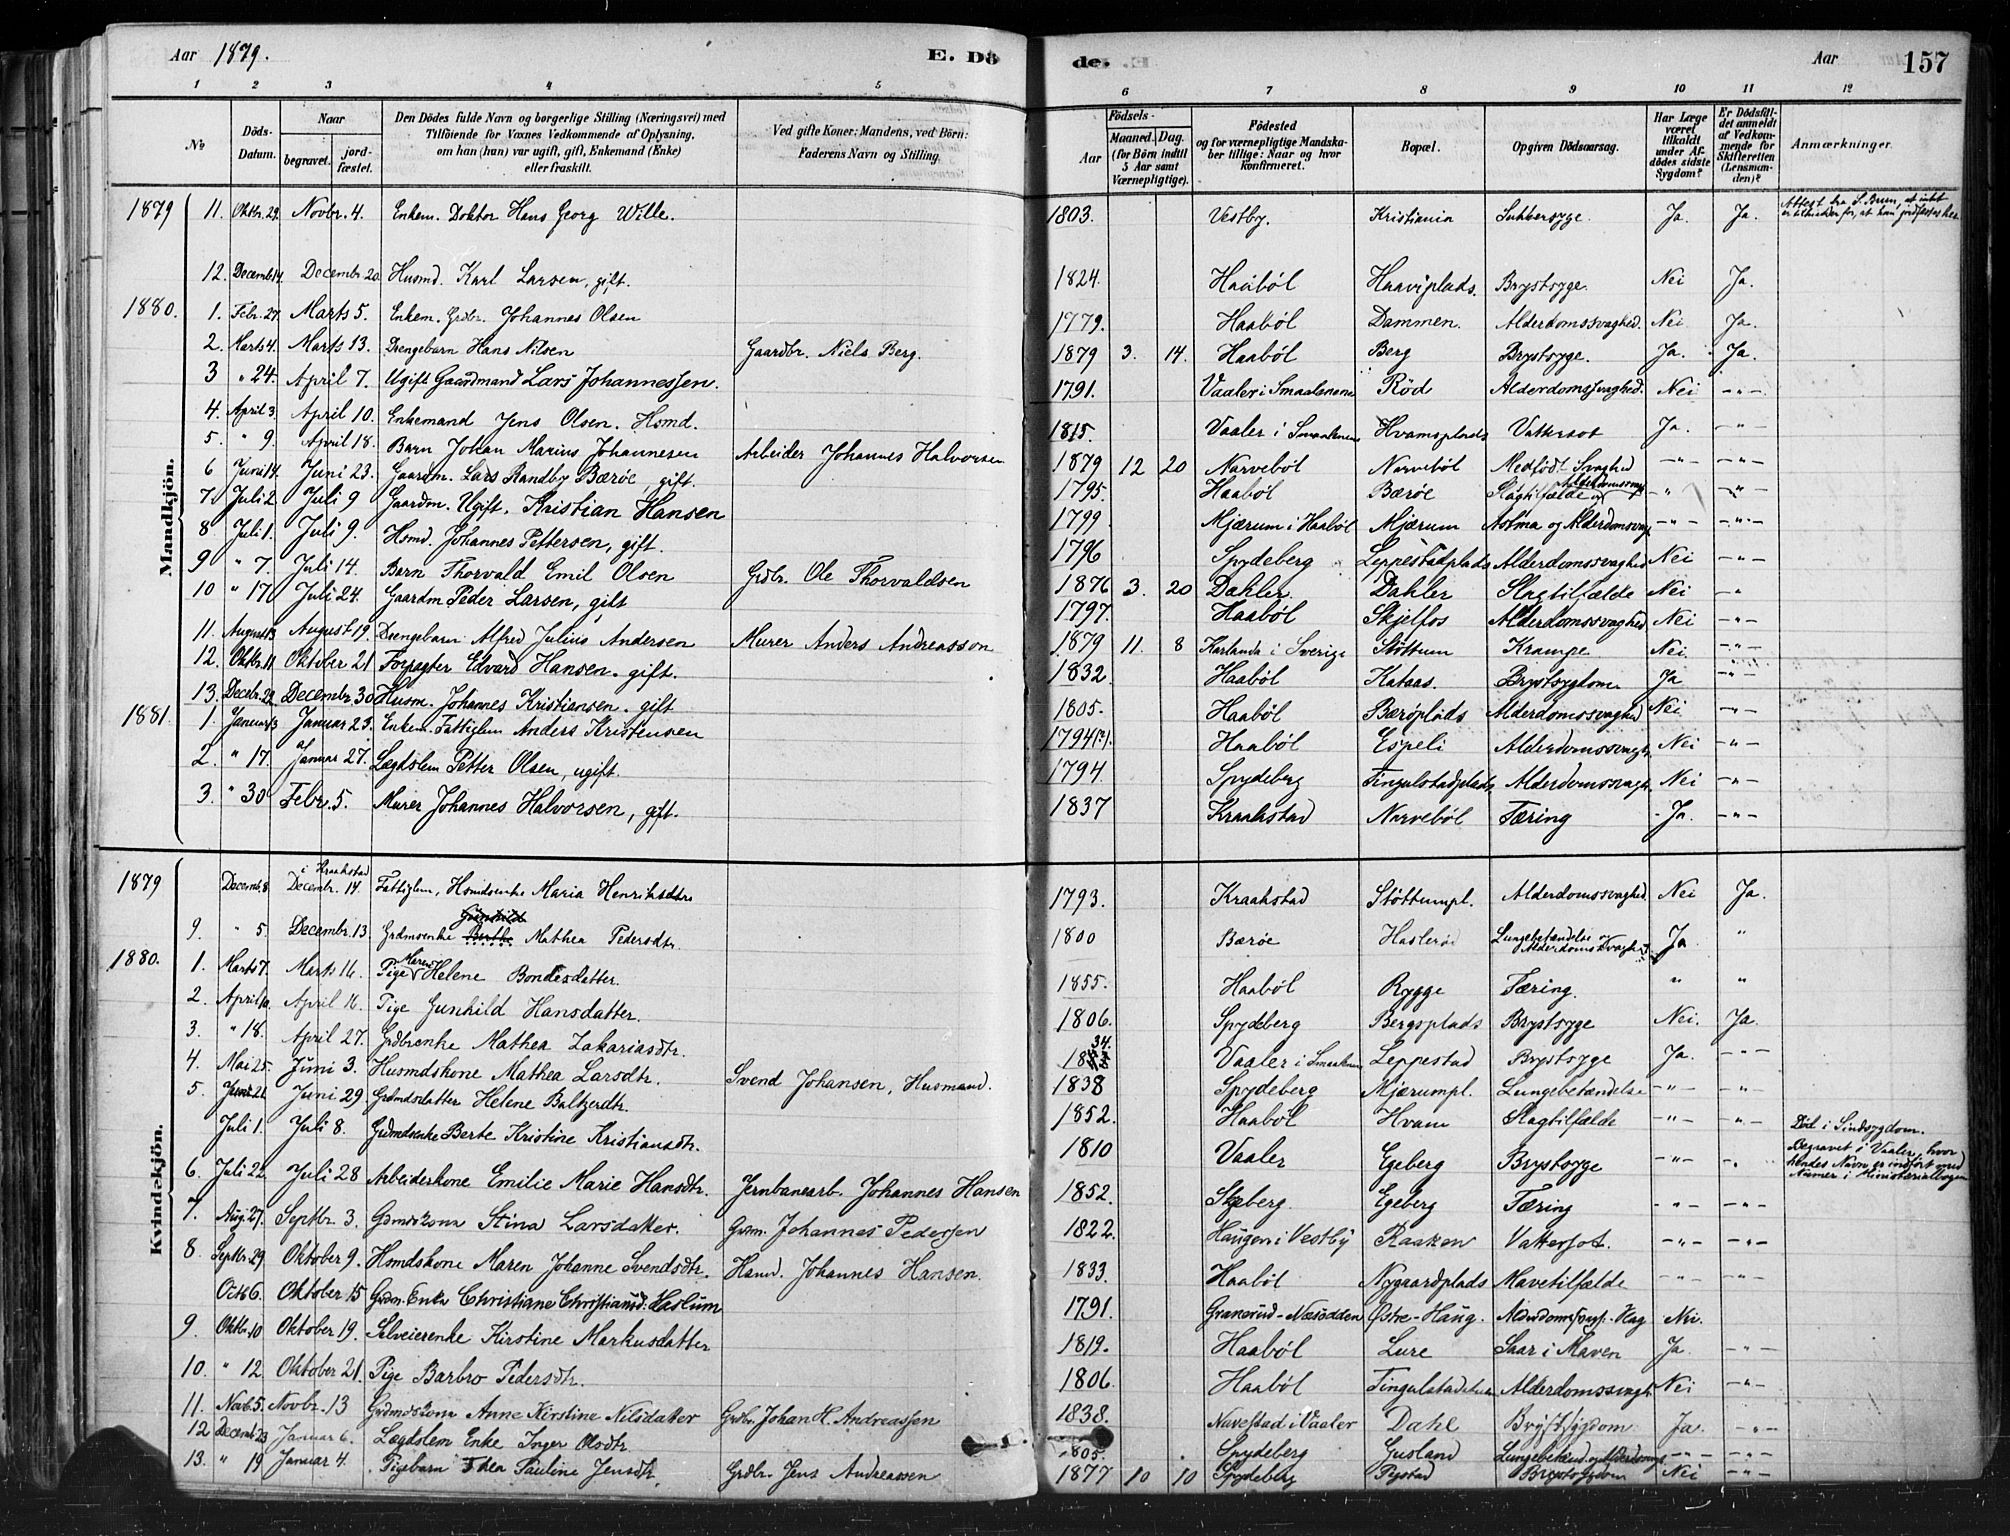 Aar 1879.
E. Dö
de.
Aar
157
1 2 3 4 5 6 7 8 9 10 11 12
No
Döds-Datum.
Naar
begravet.
jord-fæstet.
Den Dödes fulde Navn og borgerlige Stilling (Næringsvei) med
Tilföiende for Voxnes Vedkommende af Oplysning,
om han (hun) var ugift, gift, Enkemand (Enke)
eller fraskilt.
Ved gifte Koner: Mandens, ved Börn:
Faderens Navn og Stilling.
Födsels-
Aar
Maaned. Dag.
(for Börn indtil 5 Aar samt Værnepligtige).
Födested
og for værnepligtige Mandska-
ber tillige: Naar og hvor
konfirmeret.
Bopæl.
Opgiven Dödsaarsag.
Har Læge været tilkaldt under Af-dödes sidste Sygdom?
Er Dödsfal-det anmeldt af Vedkom-mende for Skifteretten (Lensman-den)?
Anmærkninger.
Mandkjön.
1879 11. Oktbr. 29. Novbr. 4. Enkem. Doktor Hans Georg Wille. 1803. Vestby. Kristiania Sukkersyge. Ja. Ja. Attest fra S. Brun, at intet er tilhinder for, at han jordfæstes her
12. Decemb. 14. Decembr. 20. Husmd. Karl Larsen, gift. 1824. Haaböl Haaviplads. Brystsyge. Nei Ja.
1880. 1. Febr. 27. Marts 5. Enkem. Grdbr. Johannes Olsen 1779. Haaböl Dammen. Alderdomssvaghed. Nei Ja.
2. Marts 4. Marts 13. Drengebarn Hans Nilsen Gaardbr. Niels Berg. 1879 3. 14. Haaböl Berg Brystsyge. Ja. Ja.
3 " 24. April 7. Ugift Gaardmand Lars Johannessen. 1791. Vaaler i Smaalenene Röd Alderdomssvaghed. Nei -"-
4. April 3. April 10. Enkemand Jens Olsen. Hsmd. 1815. Vaaler i Smaalenene Hvamsplads Vattersot Ja. -"-
5. " 9. April 18. Barn Johan Marius Johannesen Arbeider Johannes Halvorsen 1879 12 20 Narveböl Narveböl Medfödt Svaghed -"- -"-
6 Juni 14. Juni 23. Gaardm. Lars Randby Bærøe, gift. 1795. Haaböl Bærøe Slagtilfælde og Alderdomssvag. -"- -"-
7. Juli 2 Juli 9 Gaardm. Ugift. Kristian Hansen 1799. Mjærum i Haaböl Mjærum Astma og Alderdomssvag. -"- -"-
8. Juli 1. Juli 9. Hsmd. Johannes Pettersen, gift. 1796 Spydeberg Leppestadplads Alderdomssvaghed Nei -"-
9 " 7. Juli 14. Barn Thorvald Emil Olsen Grdbr. Ole Thorvaldsen 1876 3. 20 Dahler Dahler Slagtilfælde Nei "
10 " 17 Juli 24. Gaardm Peder Larsen, gift 1797. Haaböl Skjelfos Alderdomssvaghed Nei
11. August 13. August 19. Drengebarn Alfred Julius Andersen Murer Anders Andreasson 1879 11. 8 Karlanda i Sverige Støttum Krampe Nei. -"-
12. Oktbr. 11. Oktober 21 Forpagter Edvard Hansen. gift. 1832. Haaböl Kataas. Brystsygdom Ja -"-
13. Decbr. 22. Decembr. 30 Husm. Johannes Kristiansen. gift 1805. Haaböl Bærøplads Alderdomssvaghed Nei -"-
1881. 1. Januar 13 Januar 23. Enkem. Fattiglem Anders Kristensen 1794(?). Haaböl Espeli Alderdomssvagh. Nei -"-
2. " 17. Januar 27. Lægdslem Petter Olsen, ugift. 1794. Spydeberg Tingulstadplads Alderdomssvagh. Nei -"-
3. " 30 Febr. 5. Murer Johannes Halvorsen, gift. 1837 Kraakstad Narveböl Tæring Ja. -"-
Kvindekjön.
1879 Decemb. 8 i Kraakstad Decembr. 14. Fattiglem, Hsmdsenke Maria Henriksdtr 1793. Kraakstad Støttumpl. Alderdomssvaghed. Nei Ja.
9. " 5. Decembr. 13. Grdmsenke Mathea Pedersdtr. 1800 Bærøe Haslerød Lungebetændelse og Alderdomssvaghed Ja "
1880. 1. Marts 7. Marts 16. Pige Maren Helene Bondesdatter. 1855. Haaböl Rygge Tæring. " "
2. April 10. April 16. Pige Gunhild Hansdatter. 1806. Spydeberg Bergsplads Brystsyge Nei. Ja.
3. " 18. April 27. Grdbrenke Mathea Zakariasdtr. 34. Vaaler i Smaalenene Leppestad Brystsyge Ja. -"-
4. Mai 25. Juni 3. Husmdskone Mathea Larsdtr. Svend Johansen, Husmand. 1838 Spydeberg Mjærumpl. Lungebetændelse -"- -"-
5. Juni 21 Juni 29. Grdmdsdatter Helene Baltzerdtr. 1852. Haaböl Hvam Slagtilfælde -"- -"-
Juli 1. Juli 8. Grdmdsenke Berte Kristine Kristiansdtr. 1810 Vaaler Egeberg Brystsyge -"- -"- Död i Sindsygdom. Begravet i Vaaler, hvor hendes Navn er indført med Numer i Ministerialbogen
6. Juli 22 Juli 28 Arbeiderkone Emilie Marie Hansdtr. Jernbanearb. Johannes Hansen 1852. Skeberg. Egeberg Tæring -"- -"-
7. Aug. 27. Septbr. 3. Grdmdskona Stina Larsdatter. Grdm. Johannes Pedersen 1822. Haugen i Vestby Raaken Vattersot. -"- -"-
8. Septbr. 29 Oktober 9. Hsmdskone Maren Johanne Svendsdtr. Hsmd. Johannes Hansen. 1833. Haaböl Nygaardplads Mavetilfælde -"- -"-
Octb 6. Oktober 15 Grdm. Enke Christiane Christiansd: Haslum 1791. Granerud-Næsodden Østre-Haug. Nei.
9. Oktbr. 10 Oktober 19. Selveierenke Kirstine Markusdatter 1819. Haaböl Lure Saar i Maven Ja. -"-
10. " 12 Oktober 21. Pige Barbro Pedersdtr. 1806. Haaböl Alderdomssvagh. Nei -"-
11. Novb. 5. Novbr. 13 Grdmdskona Anne Kirstine Nilsdatter Grdbr. Johan H. Andreassen 1838. Navestad i Vaaler Dahl Brystsygdom Ja. -"-
12 Decemb. 23 Januar 6. Lægdslem Enke Inger Olsdtr. 1805. Spydeberg Gusland -"- -"-
13. " 19 Januar 4. Pigebarn Thea Pauline Jensdtr. Grdbr. Jens Andreassen 1877 10 10 Spydeberg Pigstad Brystsygdom Nei -"-